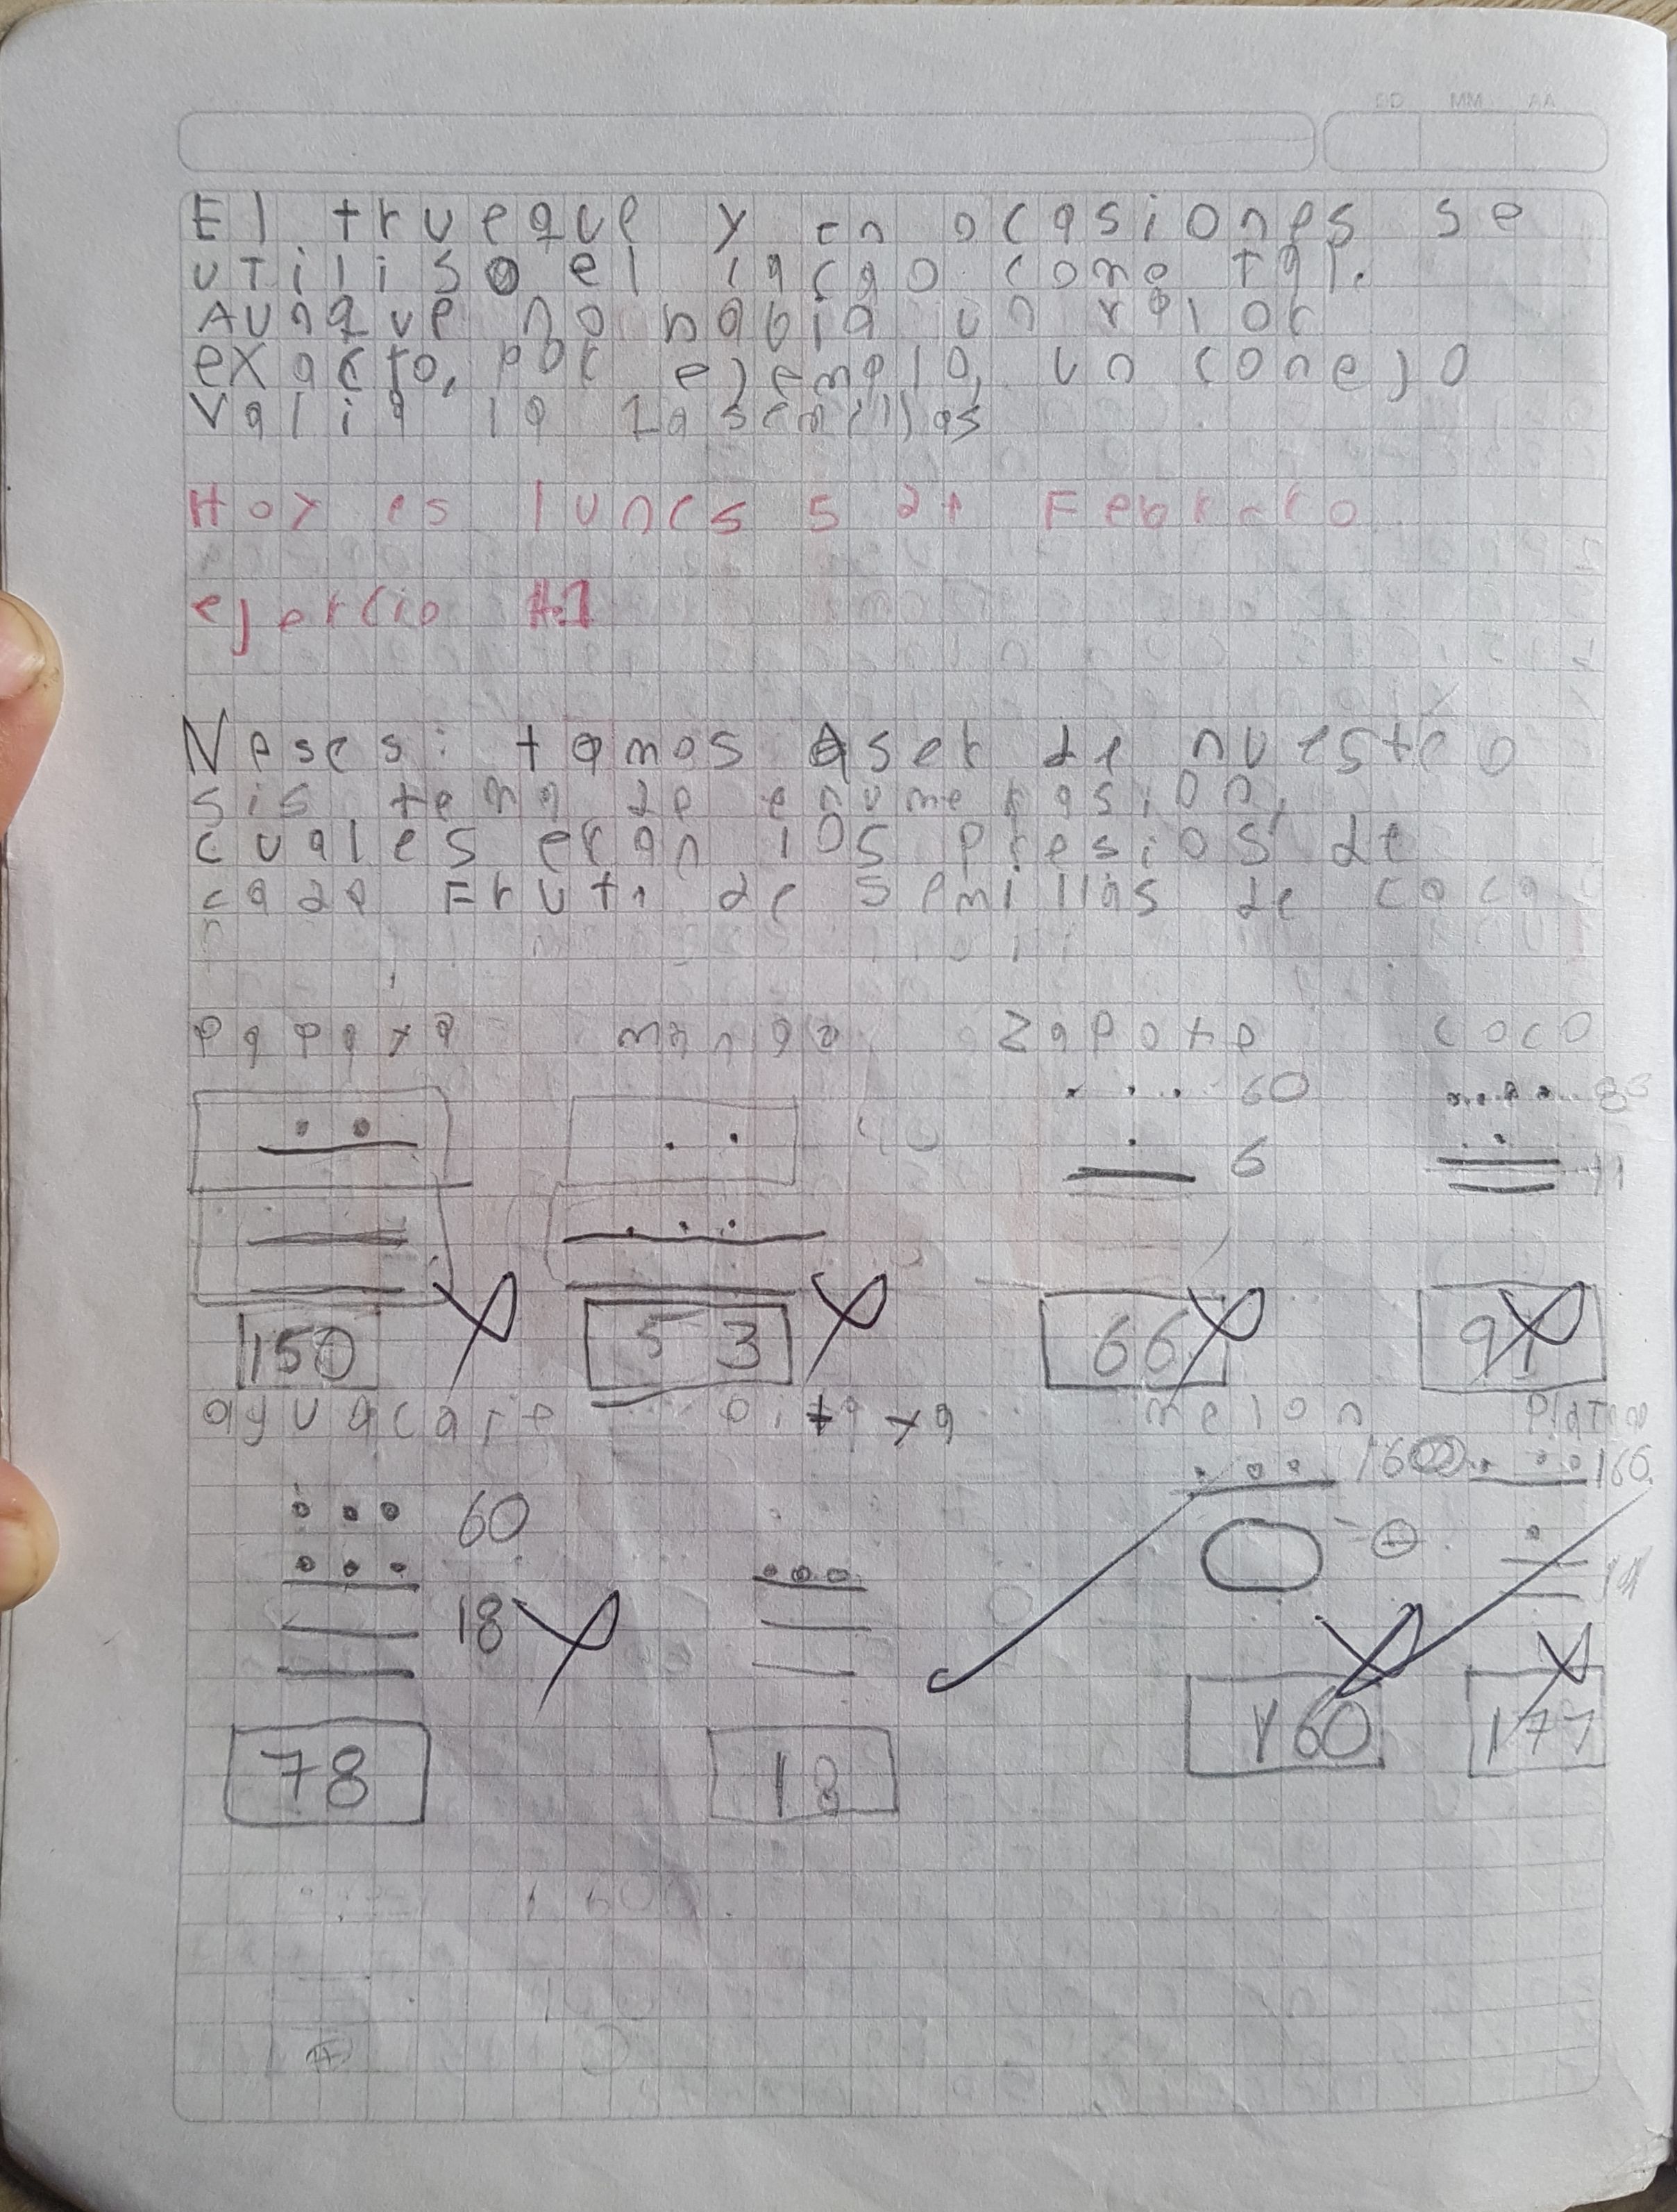 DD MM AA
El trueque y en ocasiones se
utiliso el cacao como tal.
Aunque no habia un valor
exacto, por ejemplo, un conejo
valia 10 semillas
Hoy es lunes 5 de Febrero
ejercio #1
Nesesi tamos aser de nuestro
sis tema de enumerasion,
cuales eran los presios de
cada Fruta de semillas de cacao
Papaya mango Zapote coco
60
6
150 53 66 91
aguacate Pitaya melon Platano
160 160
60
18
78 18 160 171